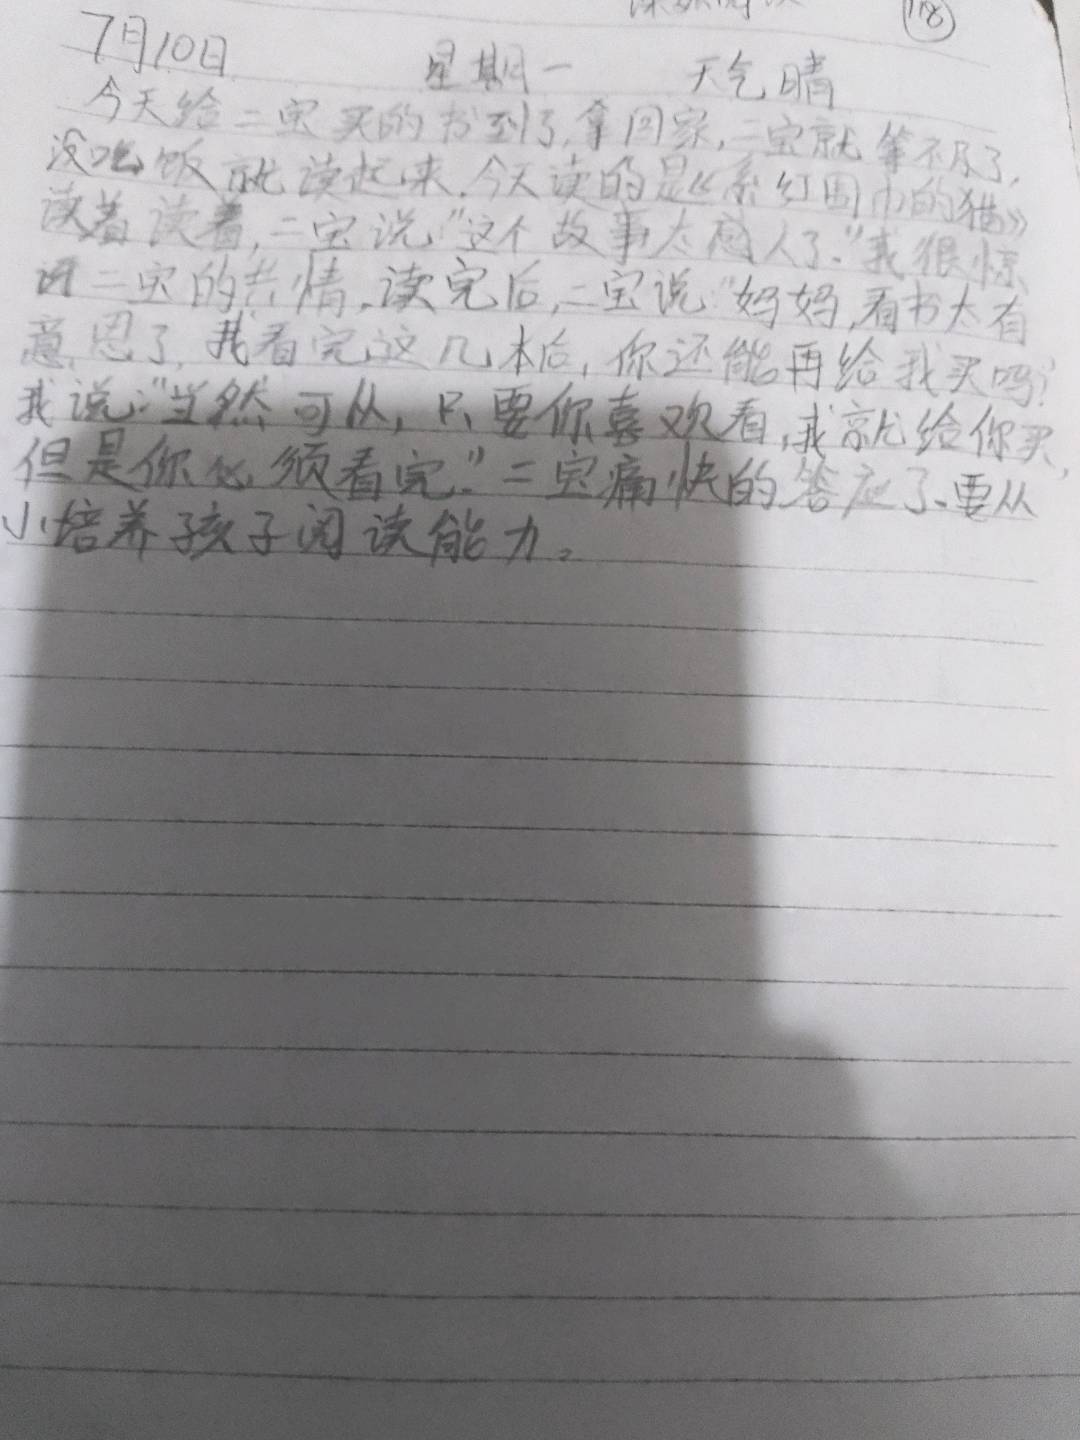 118
7月10日 星期一 天气晴
今天给二宝买的书到了,拿回家,二宝就等不及了,
没吃饭就读起来.今天读的是《系红围巾的猫》
读着读着,二宝说:"这个故事太感人了."我很惊
讶二宝的共情.读完后,二宝说:"妈妈,看书太有
意思了,我看完这几本后,你还能再给我买吗?
我说:"当然可以,只要你喜欢看,我就给你买,
但是你必须看完."二宝痛快的答应了.要从
小培养孩子阅读能力。